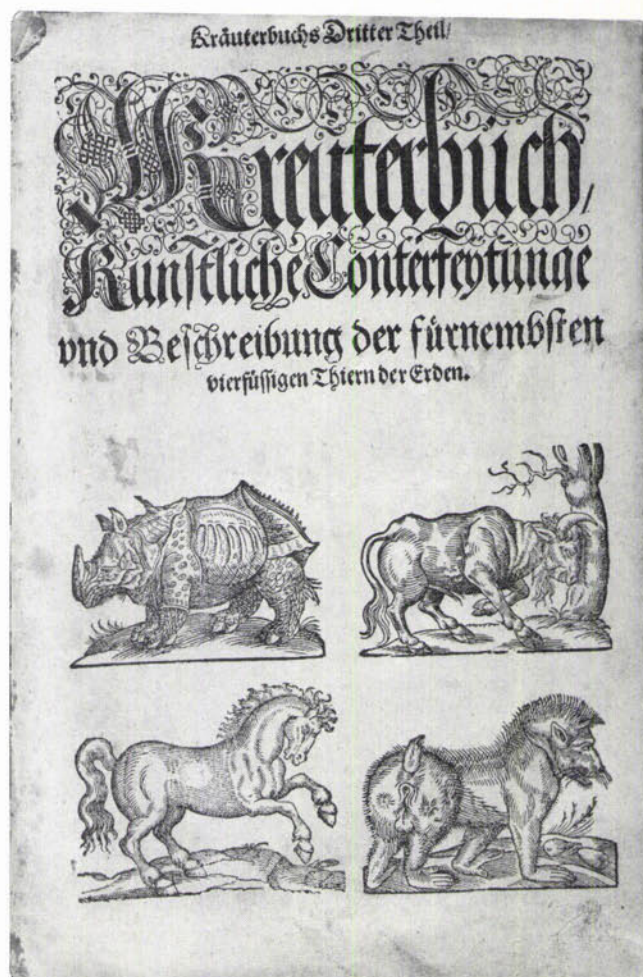 Kräuterbuchs Dritter Theil/
Kreuterbuch,
Künstliche Conterfeytunge
vnd Beschreibung der fürnembsten
vierfüssigen Thiern der Erden.